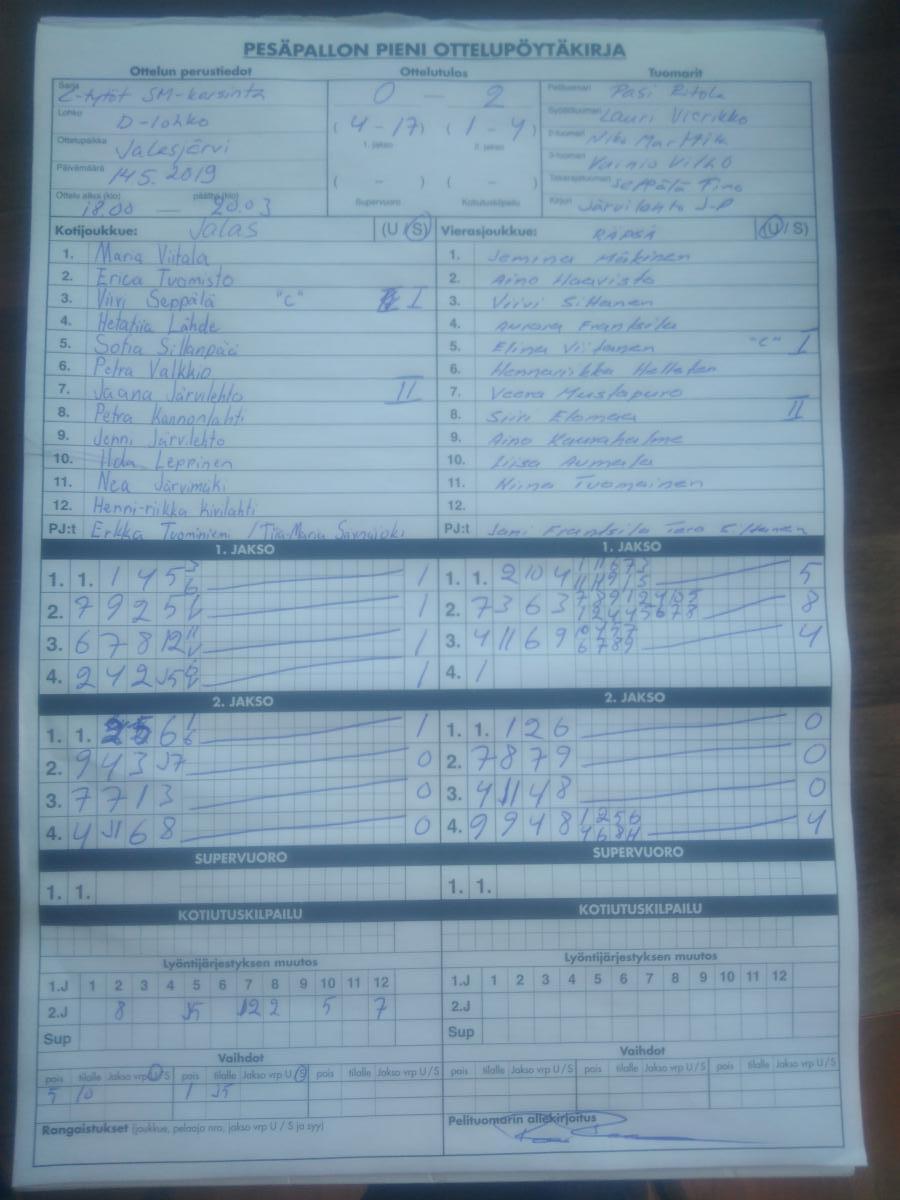 PESÄPALLON PIENI OTTELUPÖYTÄKIRJA
Ottelun perustiedot
Ottelutulos
Tuomarit
Sarja C-tytöt SM-karsinta
Lohko D-lohko
Ottelupaikka Jalasjärvi
Päivämäärä 14.5.2019
Ottelu alkoi (klo) 18.00 — päättyi (klo) 20.03
0 — 2
(4-17) (1-4)
1. jakso 2. jakso
( - ) ( - )
Supervuoro Kotiutuskilpailu
Pelituomari Pasi Ritola
Syöttötuomari Lauri Vierikko
2-tuomari Niko Marttila
3-tuomari Vainio Vilho
Takarajatuomari Seppälä Timo
Kirjuri Järvilehto J-P
Kotijoukkue: Jalas (U / S)
1. Maria Viitala
2. Erica Tuomisto
3. Viivi Seppälä "C" I
4. Lähde
5. Sofia Sillanpää
6. Petra Valkkio
7. Jaana Järvilehto II
8. Petra Kannonlahti
9. Jenni Järvilehto
10. Ilda Leppinen
11. Nea Järvimäki
12. Henni-riikka Kivilahti
PJ:t Erkka Tuominiemi / Tiia-Maria
Vierasjoukkue: RÄPSÄ (U / S)
1. Jemina Mäkinen
2. Aino Haavisto
3. Viivi Siltanen
4. Aurora Frantsila
5. Elina Viitanen "C" I
6. Hennariikka Hellsten
7. Veera Mustapuro
8. Siiri Elomaa II
9. Aino Kaurahalme
10. Liisa Aumala
11. Niina Tuomainen
12.
PJ:t Jani Frantsila Tero Siltanen
1. JAKSO
1. 1. 1 4 5 3 6 1
2. 7 9 2 5 1
3. 6 7 8 12 11 1
4. 2 4 2 5 1
1. JAKSO
1. 1. 2 10 4 5
2. 7 3 6 3 8
3. 4 11 6 9 4
4. 1
2. JAKSO
1. 1. 6 1
2. 9 4 3 0
3. 7 7 1 3 0
4. 4 6 8 0
2. JAKSO
1. 1. 1 2 6 0
2. 7 8 7 9 0
3. 4 11 4 8 0
4. 9 9 4 8 1 2 5 6 4
SUPERVUORO
1. 1.
SUPERVUORO
1. 1.
KOTIUTUSKILPAILU
KOTIUTUSKILPAILU
Lyöntijärjestyksen muutos
1.J 1 2 3 4 5 6 7 8 9 10 11 12
2.J 8 12 2 5 7
Sup
Lyöntijärjestyksen muutos
1.J 1 2 3 4 5 6 7 8 9 10 11 12
2.J
Sup
Vaihdot
pois tilalle Jakso vrp U / S pois tilalle Jakso vrp U / S pois tilalle Jakso vrp U / S
5 10 1
Vaihdot
pois tilalle Jakso vrp U / S pois tilalle Jakso vrp U / S pois tilalle Jakso vrp U / S
Rangaistukset (joukkue, pelaaja nro, jakso vrp U / S ja syy)
Pelituomarin allekirjoitus